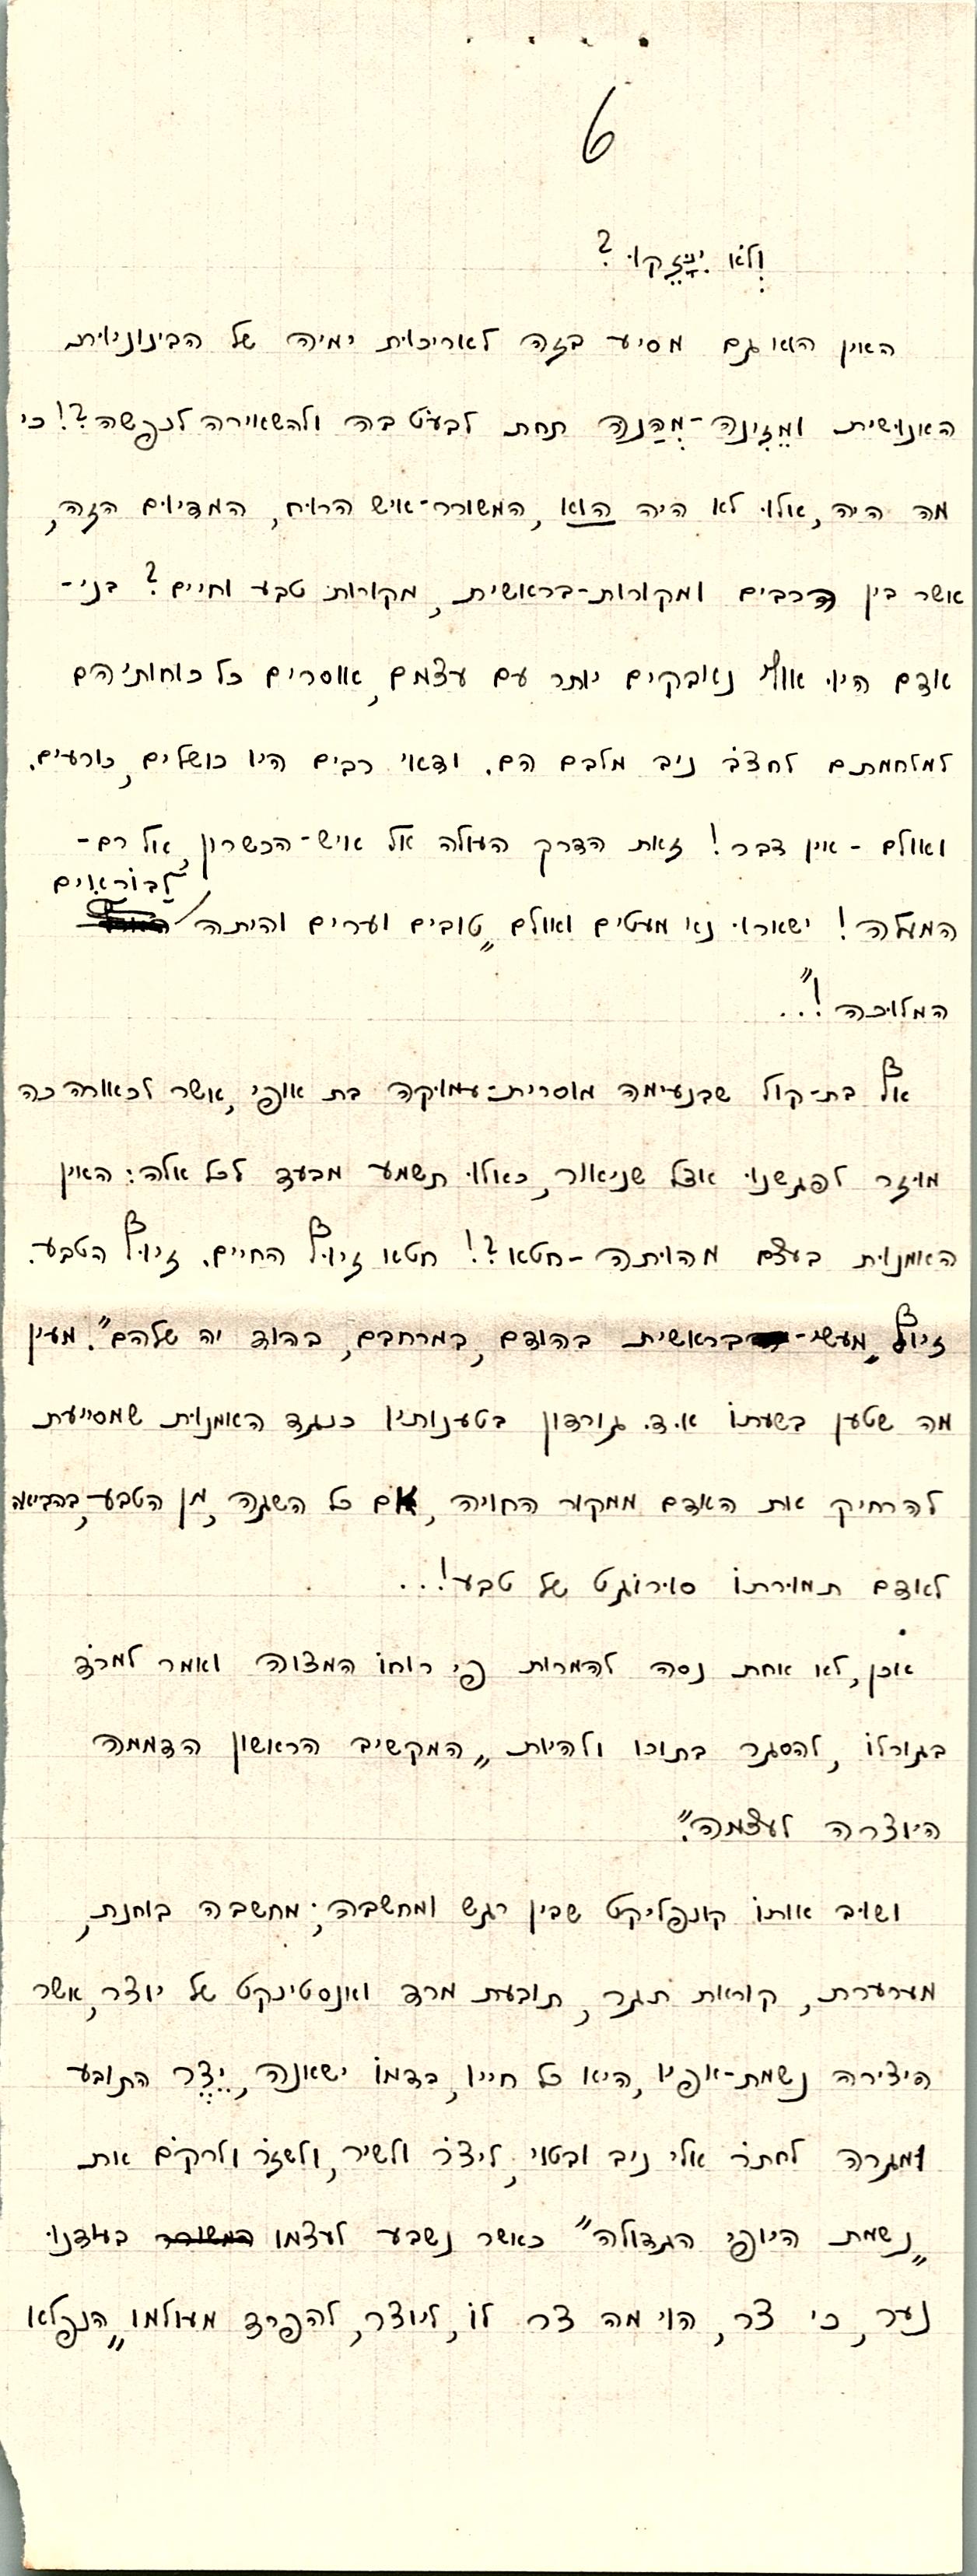 6
וְלֹא יִנָּזֵקוּ?
האין הוא גם מסיע בזה לאריכות ימיה של הבינוניות
האנושית ומֵזִינה-מְהַנה תחת לבעֹט בה ולהשאירה לנפשה?! כי
מה היה, אלו לא היה הוא, המשורר-איש הרוח, המדיום הזה,
אשר בין הרבים ומקורות-בראשית, מקורות טבע וחיים? בני-
אדם היו אולי נאבקים יותר עם עצמם, אוסרים כל כוחותיהם
למלחמתם לחצֹב ניב מלבם הם. ודאי רבים היו כושלים, כורעים.
ואולם - אין דבר! זאת הדרך העולה אל איש-הכשרון, אל רם-
לַבּוֹרְאִים
המעלה! ישארו נא מעטים ואולם „טובים וערים והיתה
המלוכה!"...
אֹ בת-קול שבנעימה מוסרית-עמוקה בת אופי, אשר לכאורה כה
מוזר לפגשנו אצל שניאור, כאלו תשמע מבעד לכל אלה: האין
האמנות בעצם מהותה - חטא?! חטא זיוף החיים. זיוף הטבע.
זיוף „מעשי-בראשית בהודם, במרחבם, בהוד יה שלהם". מעין
מה שטען בשעתו א.ד. גורדון בטענותיו כנגד האמנות שמסייעת
להרחיק את האדם ממקור החויה, אם כל השגה, מן הטבע, בהביאה
לאדם תמורתו סורוגט של טבע!...
אכן, לא אחת נסה להמרות פי רוחו המצוה ואמר למרֹד
בגורלו, להסגר בתוכו ולהיות „המקשיב הראשון הדממה
היוצרה לעצמה".
ושוב אותו קונפליקט שבין רגש ומחשבה; מחשבה בוחנת,
מערערת, קוראת תגר, תובעת מרד ואנסטינקט של יוצר, אשר
היצירה נשמת-אפיו, היא כל חייו, בדמו ישאנה, יֵצֶר התובע
ומגרה לחתֹר אלי ניב ובטוי, ליצֹר ולשיר, ולשזֹר ולרקֹם את
„נשמת היופי הגדולה" כאשר נשבע לעצמו המשורר בעודנו
נער, כי צר, הוי מה צר לו, ליוצר, להפרד מעולמו „הנפלא